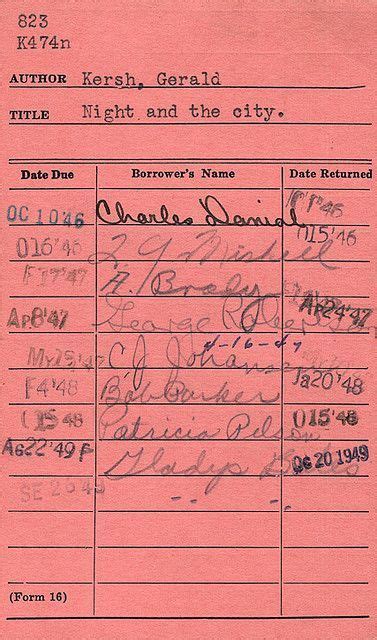 823
K474n
AUTHOR Kersh, Gerald
TITLE Night and the city.
Date Due Borrower's Name Date Returned
OC 10'46 Charles Danial
O16'46 015'46
F17'47 A. Brady
Ap8'47 George Ap24'47
4-16-47
My15'47 C J
F4'48 Bob Parker Ja20'48
15 48 Patricia 015'48
AG22'49 F Gladys OC 20 1949
SE 26 49 " "
(Form 16)